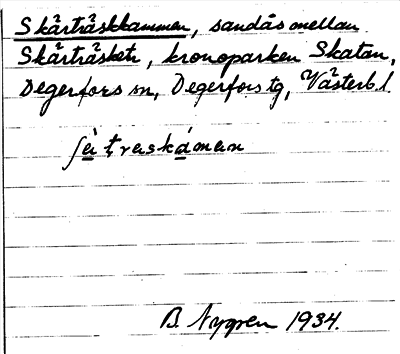 Skärträskkammen, sandås mellan
Skärträsken, kronoparken Skatan,
Degerfors sn, Degerfors tg, Västerb. l.
B. Nygren 1934.